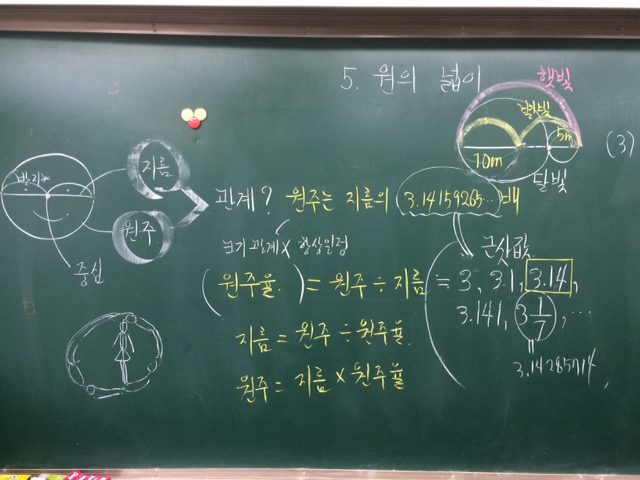 5. 원의 넓이
햇빛
별빛
5m
10m
달빛
(3)
반지름
지름
원주
중심
관계? 원주는 지름의 3.14159265… 배
크기 관계 X 항상일정
근삿값
(원주율) = 원주 ÷ 지름 = 3, 3.1, 3.14,
3.141, 3 1/7, …
3.14285714,
지름 = 원주 ÷ 원주율
원주 = 지름 × 원주율